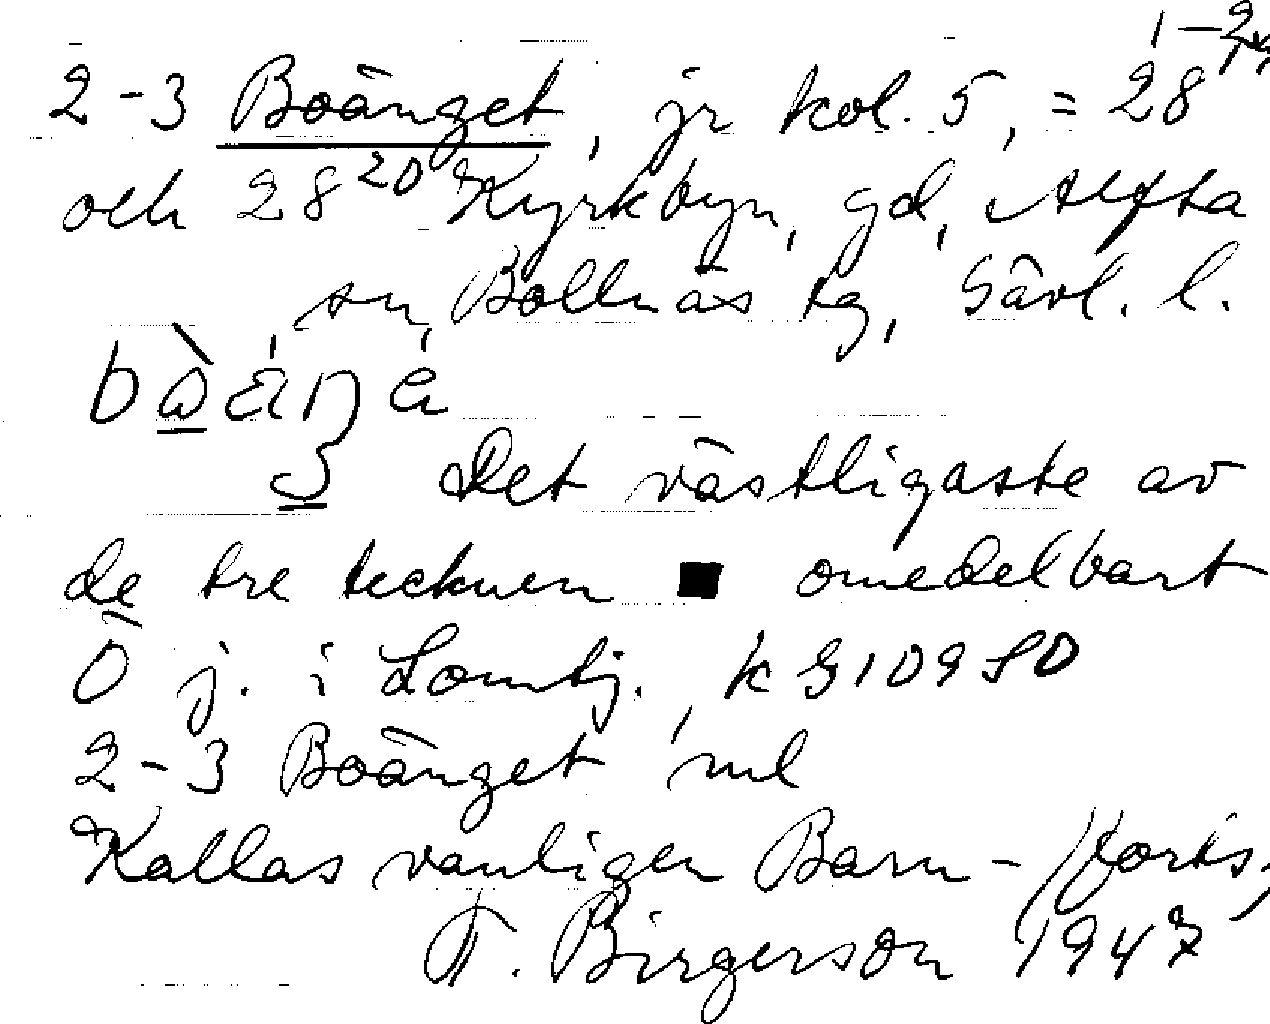 1-2
2-3 Boänget, jr kol. 5, = 28¹⁹
och 28²⁰ Kyrkbyn, gd, Alfta
sn, Bollnäs tg, Gävl. l.
Det västligaste av
de tre tecknen ■ omedelbart
Ö j. i Lomtj. k 910980
2-3 Boänget ml
Kallas vanligen Barn- (forts.)
T. Birgerson 1947